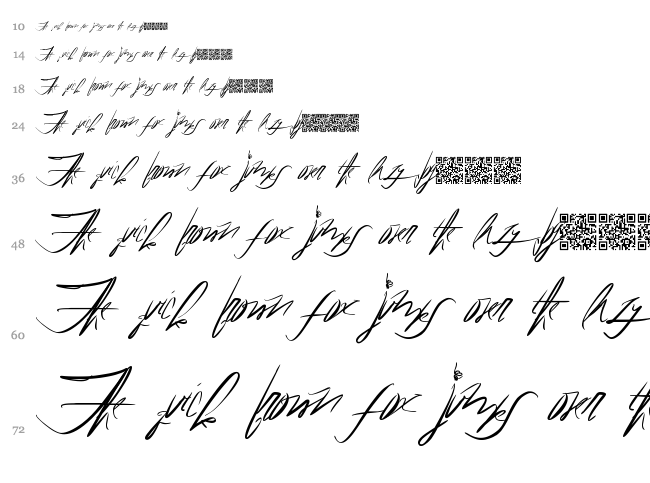 10 The quick brown fox jumps over the lazy
14 The quick brown fox jumps over the lazy
18 The quick brown fox jumps over the lazy
24 The quick brown fox jumps over the lazy
36 The quick brown fox jumps over the lazy
48 The quick brown fox jumps over the lazy
60 The quick brown fox jumps over the lazy
72 The quick brown fox jumps over th